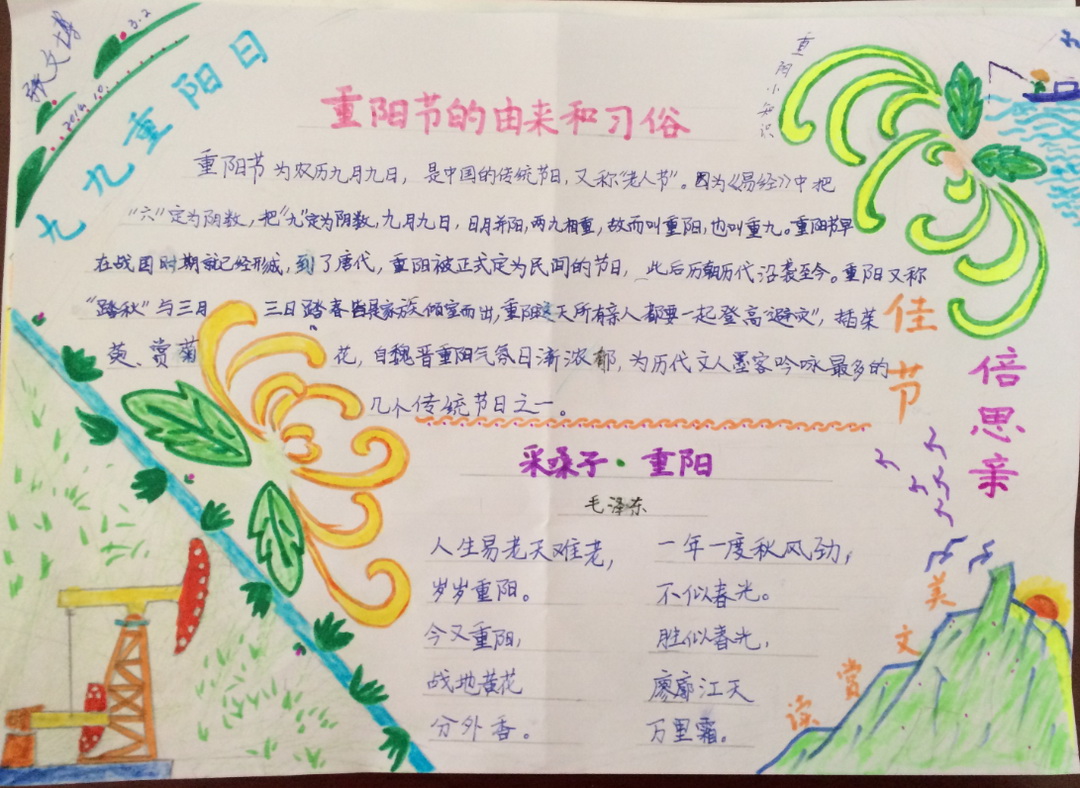 张文博
3.2
2019.10.
九九重阳日
重阳小知识
重阳节的由来和习俗
重阳节为农历九月九日，是中国的传统节日，又称“老人节”。因为《易经》中把
“六”定为阴数，把“九”定为阴数，九月九日，日月并阳，两九相重，故而叫重阳，也叫重九。重阳节早
在战国时期就已经形成，到了唐代，重阳被正式定为民间的节日，此后历朝历代沿袭至今。重阳又称
“踏秋”与三月三日踏春皆是家族倾室而出，重阳这天所有亲人都要一起登高“避灾”，插茱
萸、赏菊花，自魏晋重阳气氛日渐浓郁，为历代文人墨客吟咏最多的
几个传统节日之一。
佳节
倍思亲
采桑子·重阳
毛泽东
人生易老天难老，
岁岁重阳。
今又重阳，
战地黄花
分外香。
一年一度秋风劲，
不似春光。
胜似春光，
廖廓江天
万里霜。
读赏文美